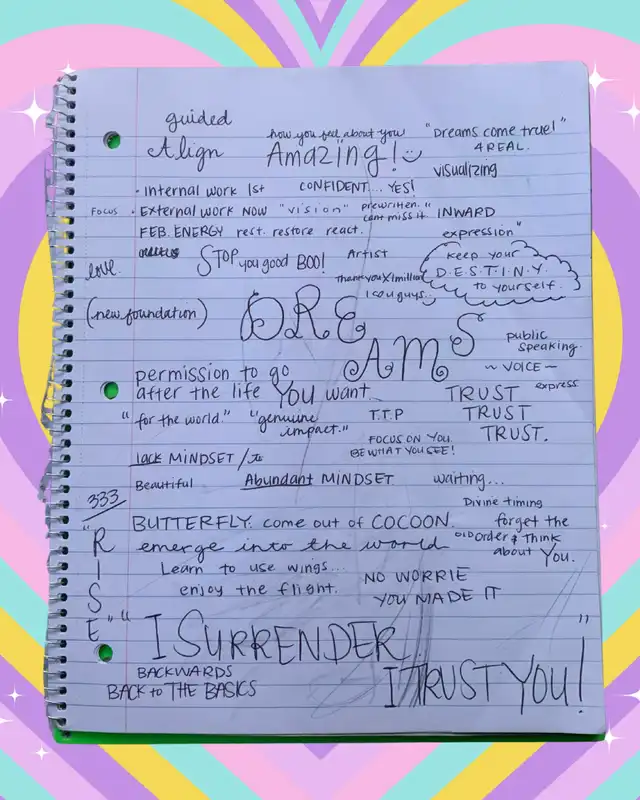 guided
Align
how you feel about you
Amazing!
"Dreams come true!"
4 REAL.
visualizing
• Internal work 1st
CONFIDENT... YES!
FOCUS • External work NOW "vision"
prewritten."
cant miss it.
INWARD
expression"
FEB. ENERGY rest. restore react.
love.
STOP you good BOO!
Artist
Thank you X1million
I see you guys..
Keep your
D.E.S.T.I.N.Y.
to yourself.
(new foundation)
DREAMS
public
speaking.
~ VOICE ~
express
permission to go
after the life YOU want.
TRUST
TRUST
TRUST.
"for the world."
"genuine
impact."
T.T.P
FOCUS ON YOU.
BE WHAT YOU SEE!
lack MINDSET /
Beautiful
Abundant MINDSET
waiting...
333
Divine timing
BUTTERFLY. come out of COCOON.
emerge into the world
forget the
OLD Order & Think
about You.
Learn to use wings...
enjoy the flight.
NO WORRIE
YOU MADE IT
"RISE"
"I SURRENDER..
I TRUST YOU!"
BACKWARDS
BACK to THE BASICS